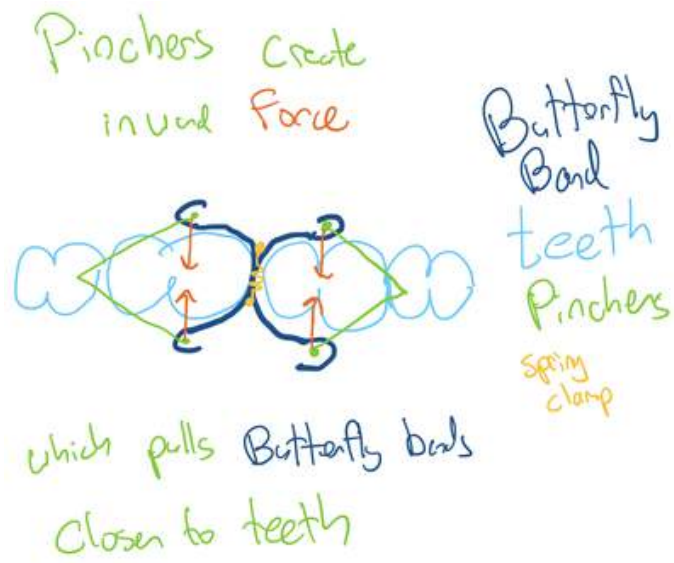 Pinchers create
inward Force
Butterfly
Band
teeth
Pinchers
spring
clamp
which pulls Butterfly bands
Closer to teeth